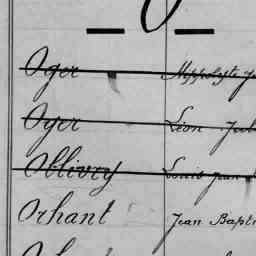 O
Oger Hippolyte
Oger Léon Jul
Ollivry Louis Jean
Orhant Jean Bapti